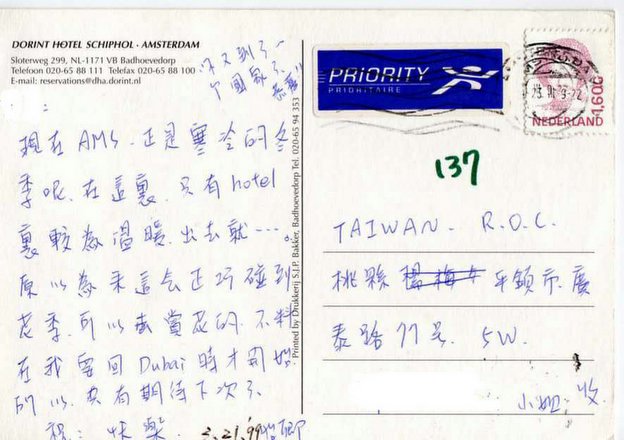 DORINT HOTEL SCHIPHOL · AMSTERDAM
Sloterweg 299, NL-1171 VB Badhoevedorp
Telefoon 020-65 88 111 Telefax 020-65 88 100
E-mail: reservations@dha.dorint.nl
又到了
個國家了
現在 AMS. 正是寒冷的冬
季呢. 在這裏. 只有 hotel
裏較為溫暖. 出去就……。
原以為來這会正巧碰到
花季. 可以去賞花的. 不料
在我要回 Dubai 時才開始
所以. 只有期待下次了
祝: 快樂 2.21.'99
Printed by Drukkerij S.J.P. Bakker, Badhoevedorp Tel. 020-65 94 353
PRIORITY
PRIORITAIRE
NEDERLAND 1,60
137
TAIWAN. R.O.C.
桃縣 楊梅 平鎮市. 廣
泰路 77号. 5W.
小姐 收